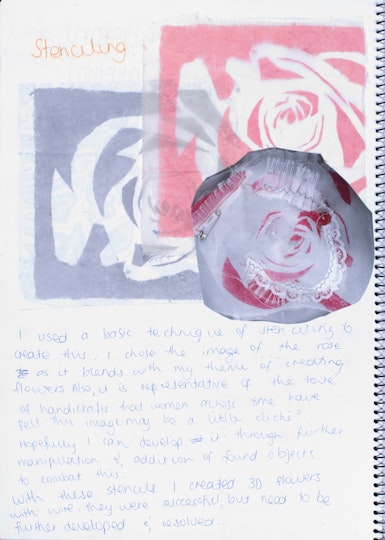 Stenciling
I used a basic technique of stenciling to
create this. I chose the image of the rose
as it blends with my theme of creating
flowers. Also, it is representative of the love
of handicrafts that women across time have
felt. This image may be a little cliché?
Hopefully I can develop it through further
manipulation & addition of found objects
to combat this.
With these stencils I created 3D flowers
with wire. They were successful, but need to be
further developed & resolved.